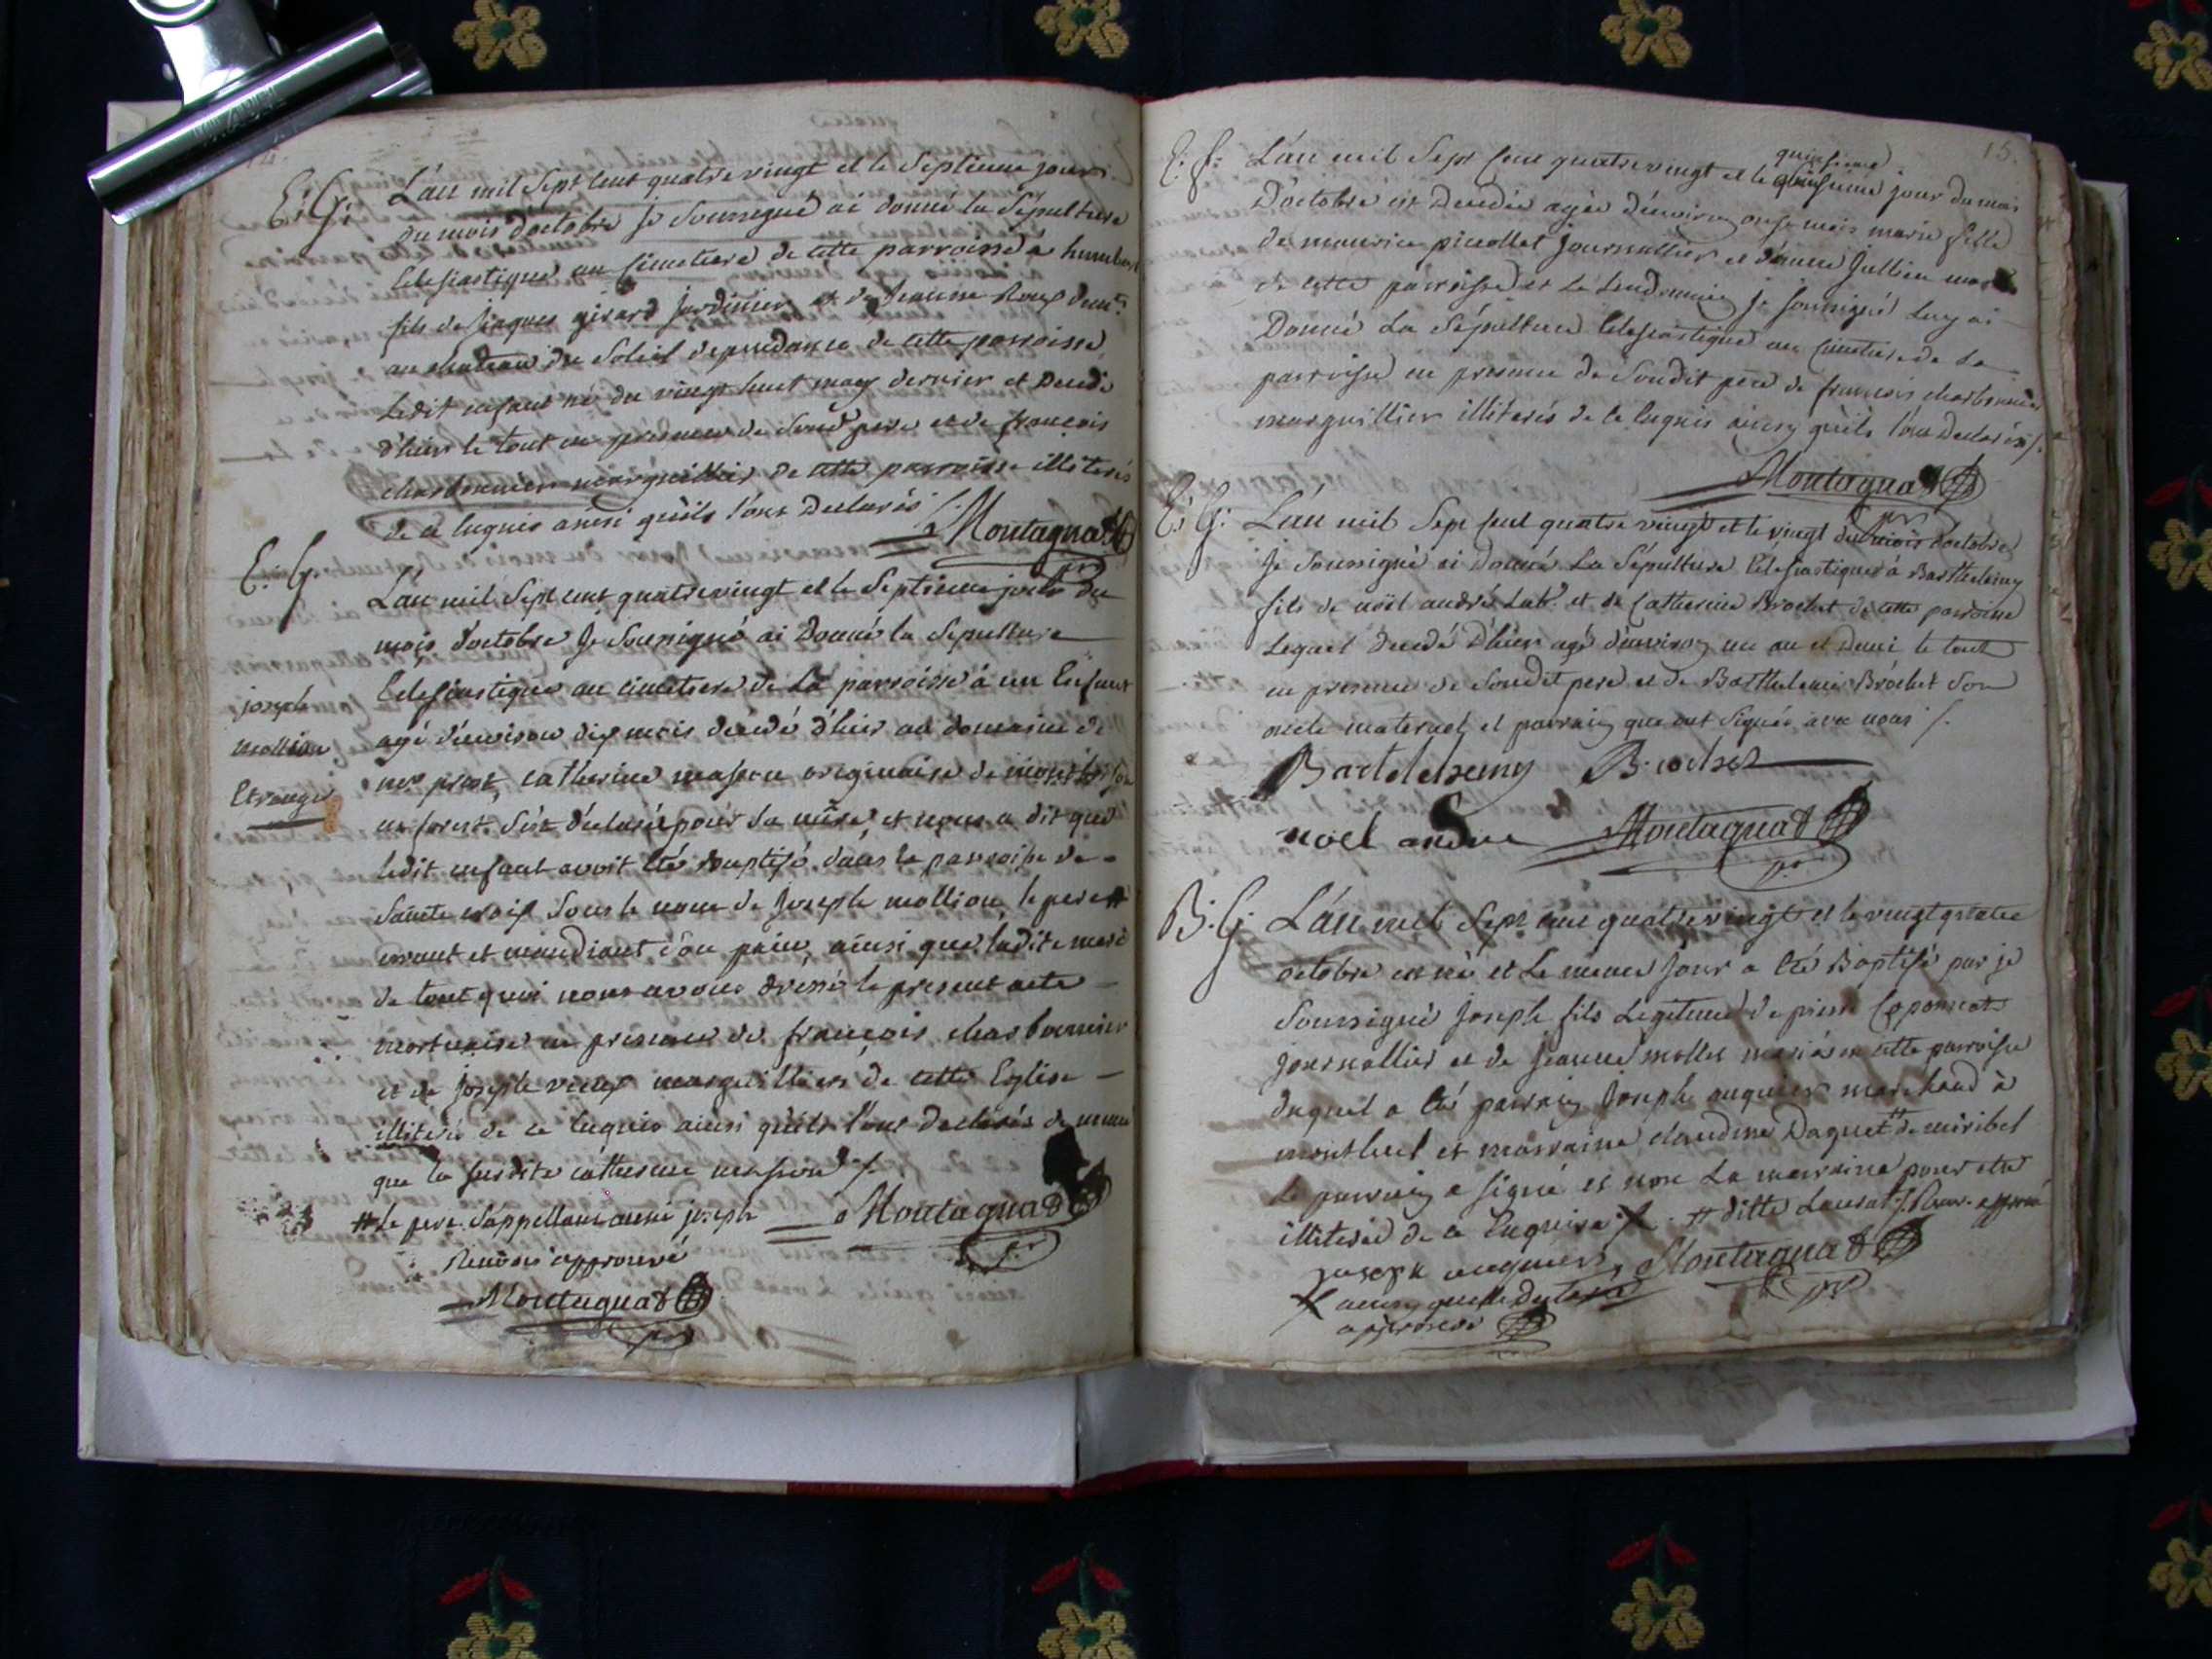 E: G:
L'an mil sept cent quatre vingt et le septieme jour
du mois d'octobre je soussigné ai donné la sépulture
Eclesiastique au cimetiere de cette parroisse à humbert
fils de jaques girard jardinier et de jeanne Roux demts
au chateau du Soleil dependance de cette parroisse
ledit enfant né du vingt huit may dernier et decedé
d'hier le tout en presence de sond pere et de françois
charbonnier marguillier de cette parroisse illiterés
de ce enquis ainsi qu'ils l'ont declarés /.
Montagnat
pr
E: G:
L'an mil sept cent quatre vingt et le septieme jour du
mois d'octobre je soussigné ai donné la sepulture
joseph
mollion
Etranger
Eclesiastique au cimetiere de la parroisse à un Enfant
agé d'environ dix mois decedé d'hier au domaine de
mr prost, catherine masson originaire de montbrison
en forest s'est declarée pour sa mère, et nous a dit que
ledit enfant avoit été baptisé dans la parroisse de
Sainte croix sous le nom de joseph mollion, le pere #
errant et mandiant son pain, ainsi que ladite mere
de tout quoi nous avons dréssé le present acte
mortuaire en presence de françois charbonnier
et de joseph vieux marguilliers de cette Eglise
illiteré de ce enquis ainsi qu'ils l'ont declarés de meme
que la susdite catherine masson /.
# Le pere s'appellant aussi joseph
Montagnat
pr
Renvoi approuvé
Montagnat
pr
15.
E: f:
L'an mil sept cent quatre vingt et le quinsieme jour du mois
quinsieme
D'octobre est decedée agée d'environ onse mois marie fille
de maurice picollet journallier et d'anne jullien mariés
de cette parroisse et le lendemain je soussigné luy ai
Donné la sépulture Eclesiastique au cimetiere de la
parroisse en presence de soudit pere de françois charbonnier
marguillier illiterés de ce enquis ainsy qu'ils l'ont declarés /.
Montagnat
pr
E: G:
L'an mil sept cent quatre vingt et le vingt du mois d'octobre
je soussigné ai donné la sépulture Eclesiastique à Barthelemy
fils de noël andré labr. et de catherine Brochet de cette parroisse
lequel decedé d'hier agé d'environ un an et demi le tout
en presence de soudit pere et de Barthelemi Brochet son
oncle maternel et parrain qui ont signés avec nous /.
Bartelhemy Brochet
noel andre Montagnat
pr
B: G:
L'an mil sept cent quatre vingt et le vingt quatre
octobre est né et le meme jour a été Baptisé par je
soussigné joseph fils legitime de pierre Caponnat
journallier et de jeanne mollet mariés en cette parroisse
duquel a été parrain joseph auguier marchand à
montluel et marraine claudine Daquet # de miribel
le parrain a signé et non la marraine pour etre
illiterée de ce Enquise # ditte Laurat /. Renv. approuvé
joseph auguier Montagnat
pr
ainsy quelle declaré
approuvé